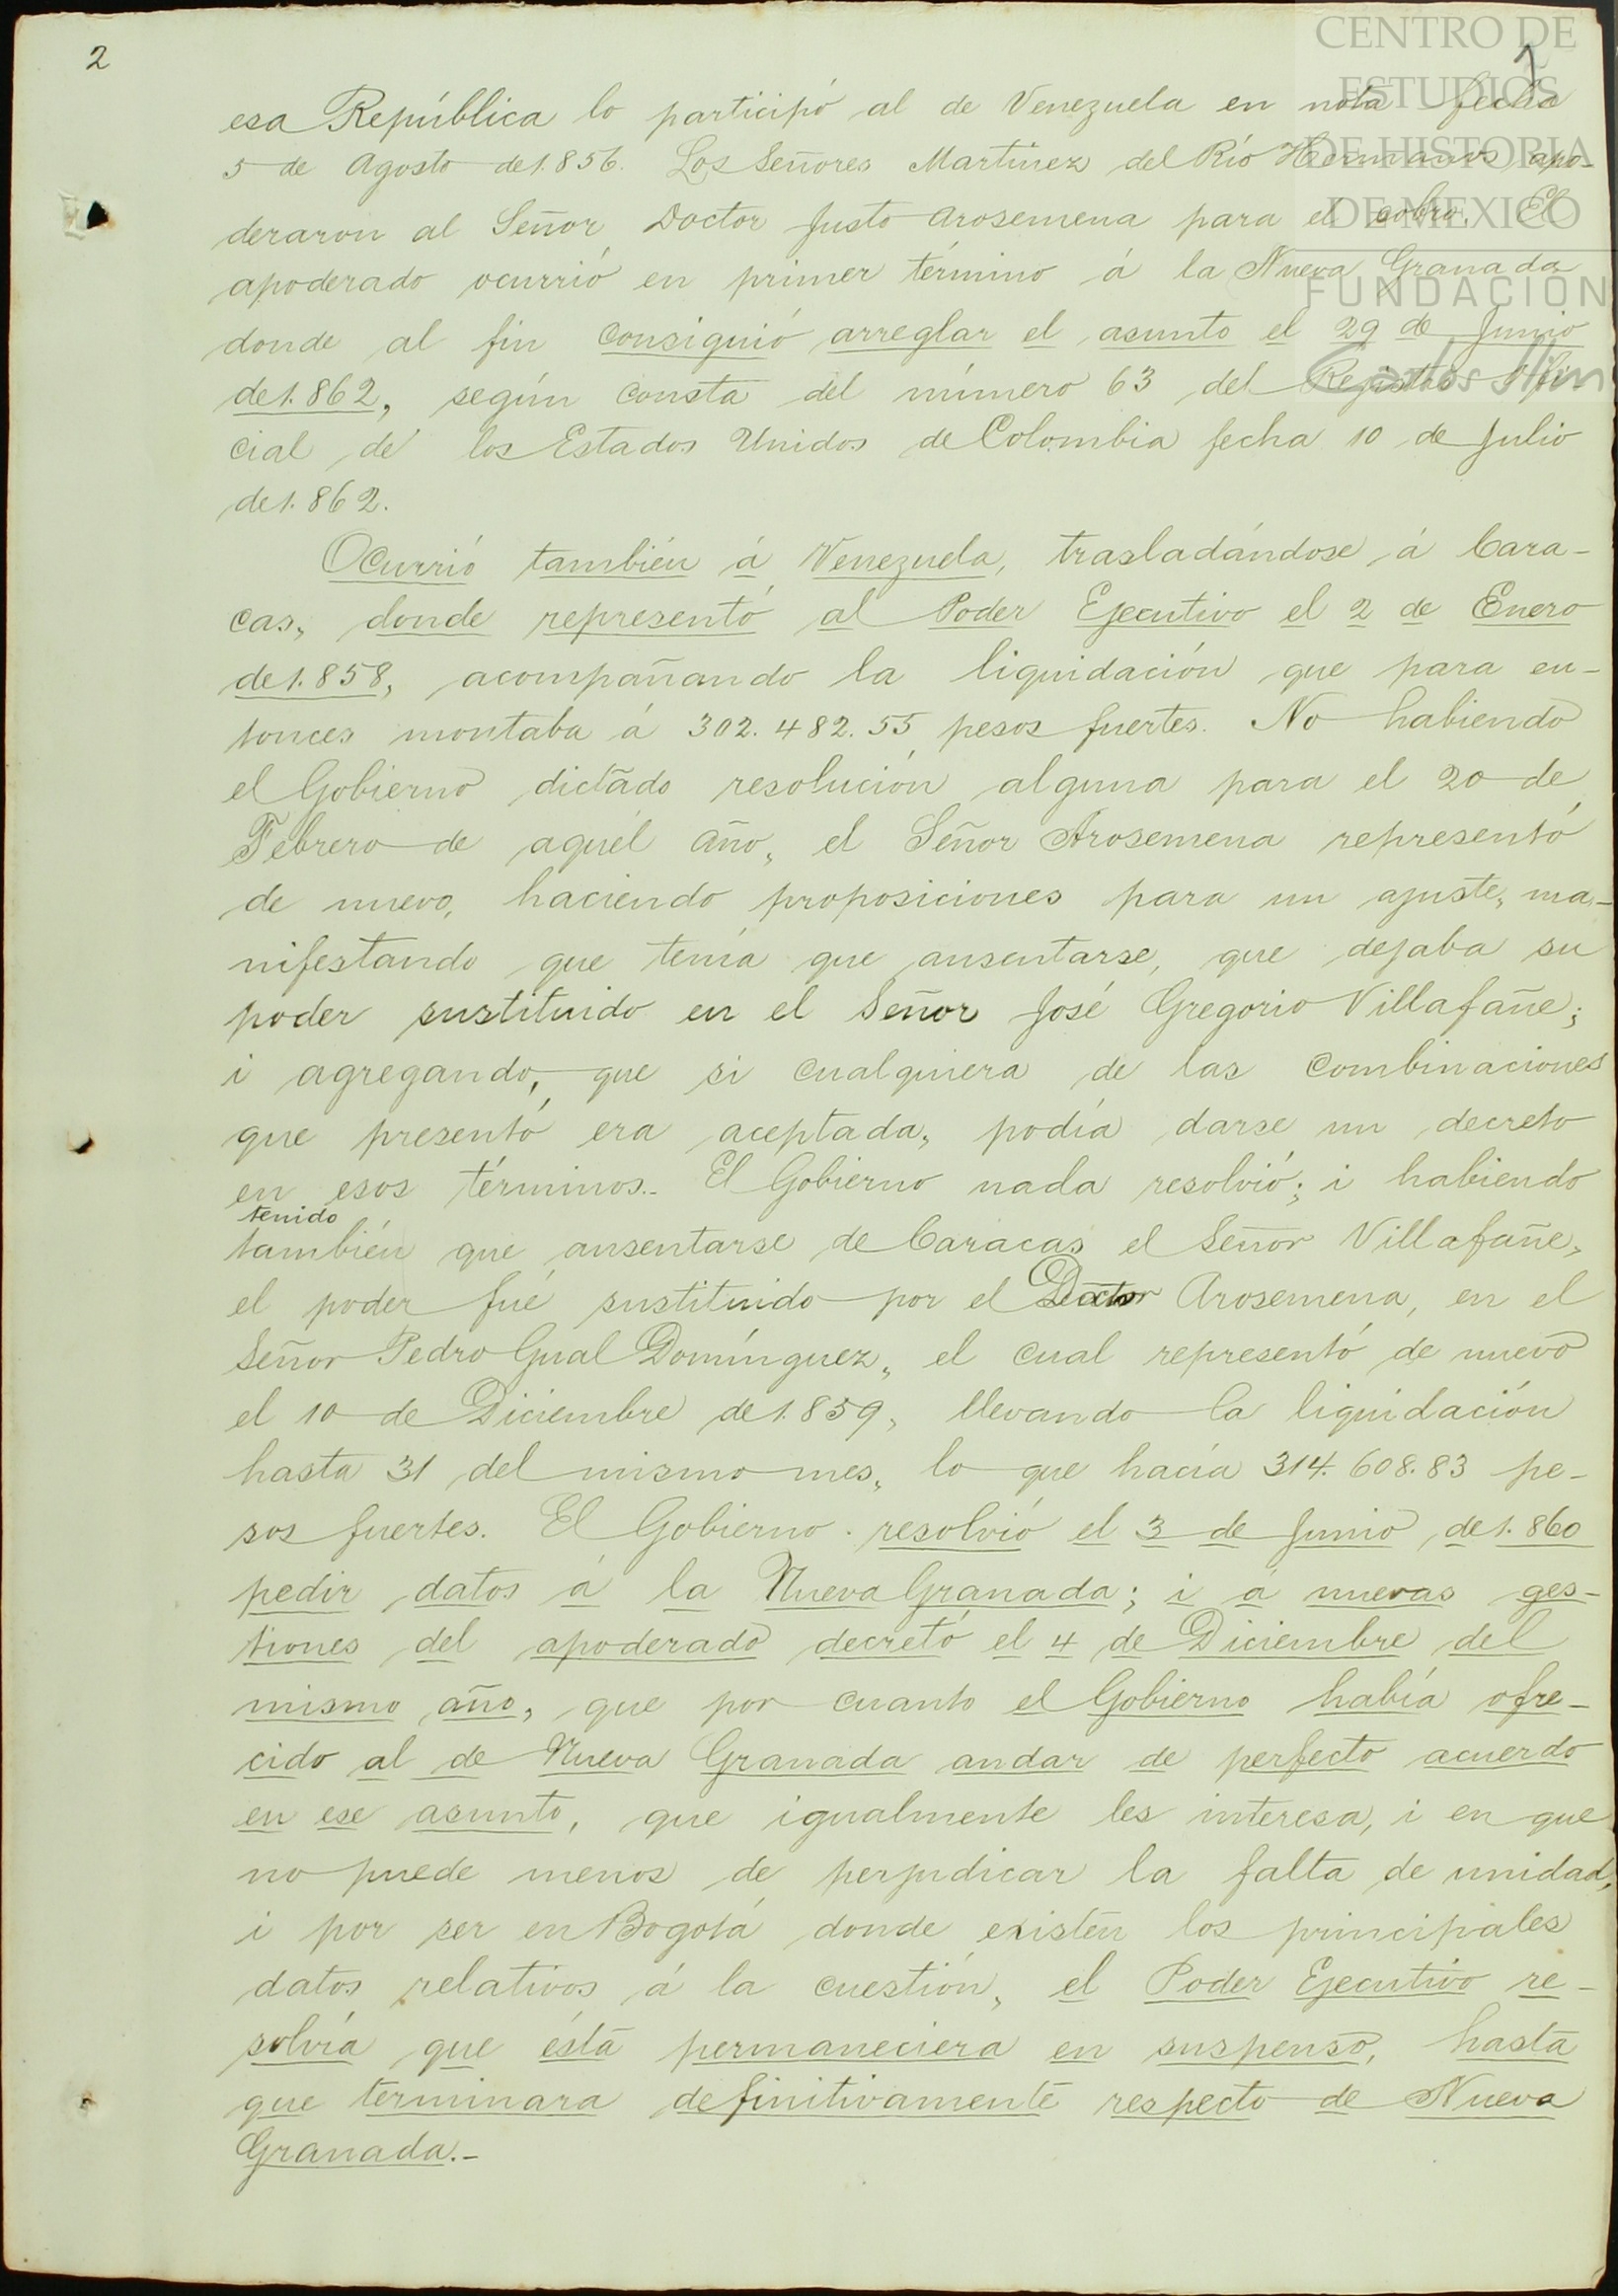 2
CENTRO DE
ESTUDIOS
DE HISTORIA
DE MEXICO
FUNDACIÓN
Carlos Slim
esa República lo participó al de Venezuela en nota fecha
5 de Agosto de 1.856. Los Señores Martínez del Río Hermanos apo-
deraron al Señor Doctor Justo Arosemena para el cobro. El
apoderado ocurrió en primer término á la Nueva Granada
donde al fin consiguió arreglar el asunto el 29 de Junio
de 1.862, según consta del número 63 del Registro Ofi-
cial de los Estados Unidos de Colombia fecha 10 de Julio
de 1.862.
Ocurrió también á Venezuela, trasladándose á Cara-
cas, donde representó al Poder Ejecutivo el 2 de Enero
de 1.858, acompañando la liquidación que para en-
tonces montaba á 302.482.55 pesos fuertes. No habiendo
el Gobierno dictado resolución alguna para el 20 de
Febrero de aquél año, el Señor Arosemena representó
de nuevo, haciendo proposiciones para un ajuste, ma-
nifestando que tenía que ausentarse, que dejaba su
poder sustituido en el Señor José Gregorio Villafañe;
i agregando, que si cualquiera de las combinaciones
que presentó era aceptada, podía darse un decreto
en esos términos.- El Gobierno nada resolvió; i habiendo
tenido
también que ausentarse de Caracas el Señor Villafañe,
el poder fué sustituido por el Doctor Arosemena, en el
Señor Pedro Gual Domínguez, el cual representó de nuevo
el 10 de Diciembre de 1.859, llevando la liquidación
hasta 31 del mismo mes, lo que hacía 314.608.83 pe-
sos fuertes. El Gobierno resolvió el 3 de Junio de 1.860
pedir datos á la Nueva Granada; i á nuevas ges-
tiones del apoderado decretó el 4 de Diciembre del
mismo año, que por cuanto el Gobierno había ofre-
cido al de Nueva Granada andar de perfecto acuerdo
en ese asunto, que igualmente les interesa, i en que
no puede menos de perjudicar la falta de unidad,
i por ser en Bogotá donde existen los principales
datos relativos á la cuestión, el Poder Ejecutivo re-
solvía que ésta permaneciera en suspenso, hasta
que terminara definitivamente respecto de Nueva
Granada.-